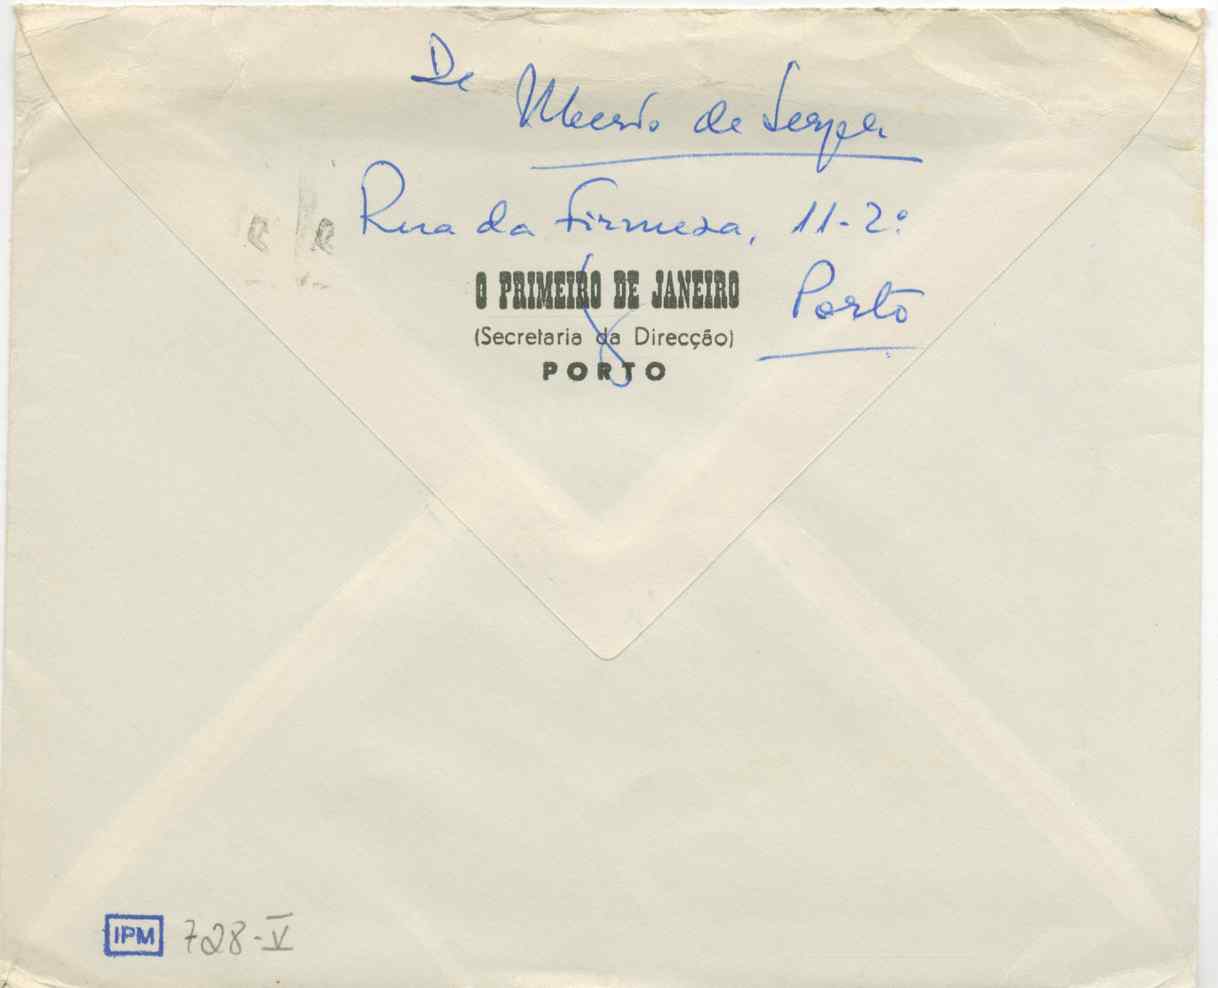 De
de Serpa
Rua da Firmeza, 11-2º
O PRIMEIRO DE JANEIRO
Porto
(Secretaria da Direcção)
PORTO
IPM 728-V